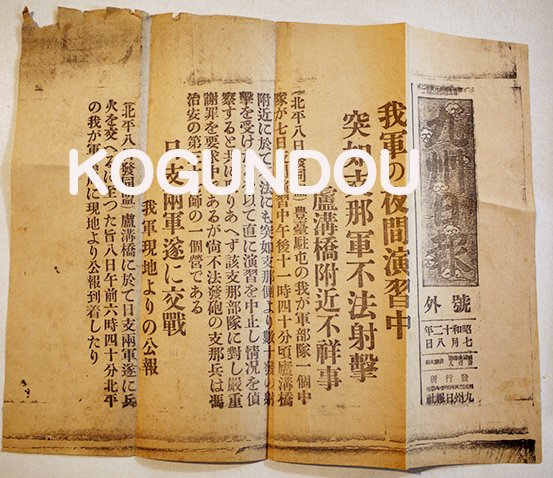 九州日報
號外
昭和十二年
七月八日
發行所
九州日報社
我軍の夜間演習中
突如支那軍不法射撃
盧溝橋附近不祥事
(北平八日發同盟)豊臺駐屯の我が軍部隊一個中
隊が七日夜間演習中午後十一時四十分頃盧溝橋
附近に於て不法にも突如支那側より數十發の射
撃を受け 以て直に演習を中止し情況を偵
察すると共に りあへず該支那部隊に對し嚴重
謝罪を要求中 あるが尚不法發砲の支那兵は馮
治安の第 師の一個營である
日支兩軍遂に交戰
我軍現地よりの公報
(北平八日發同盟)盧溝橋に於て日支兩軍遂に兵
火を交へるに至つた旨八日午前六時四十分北平
の我が軍 に現地より公報到着したり
KOGUNDOU